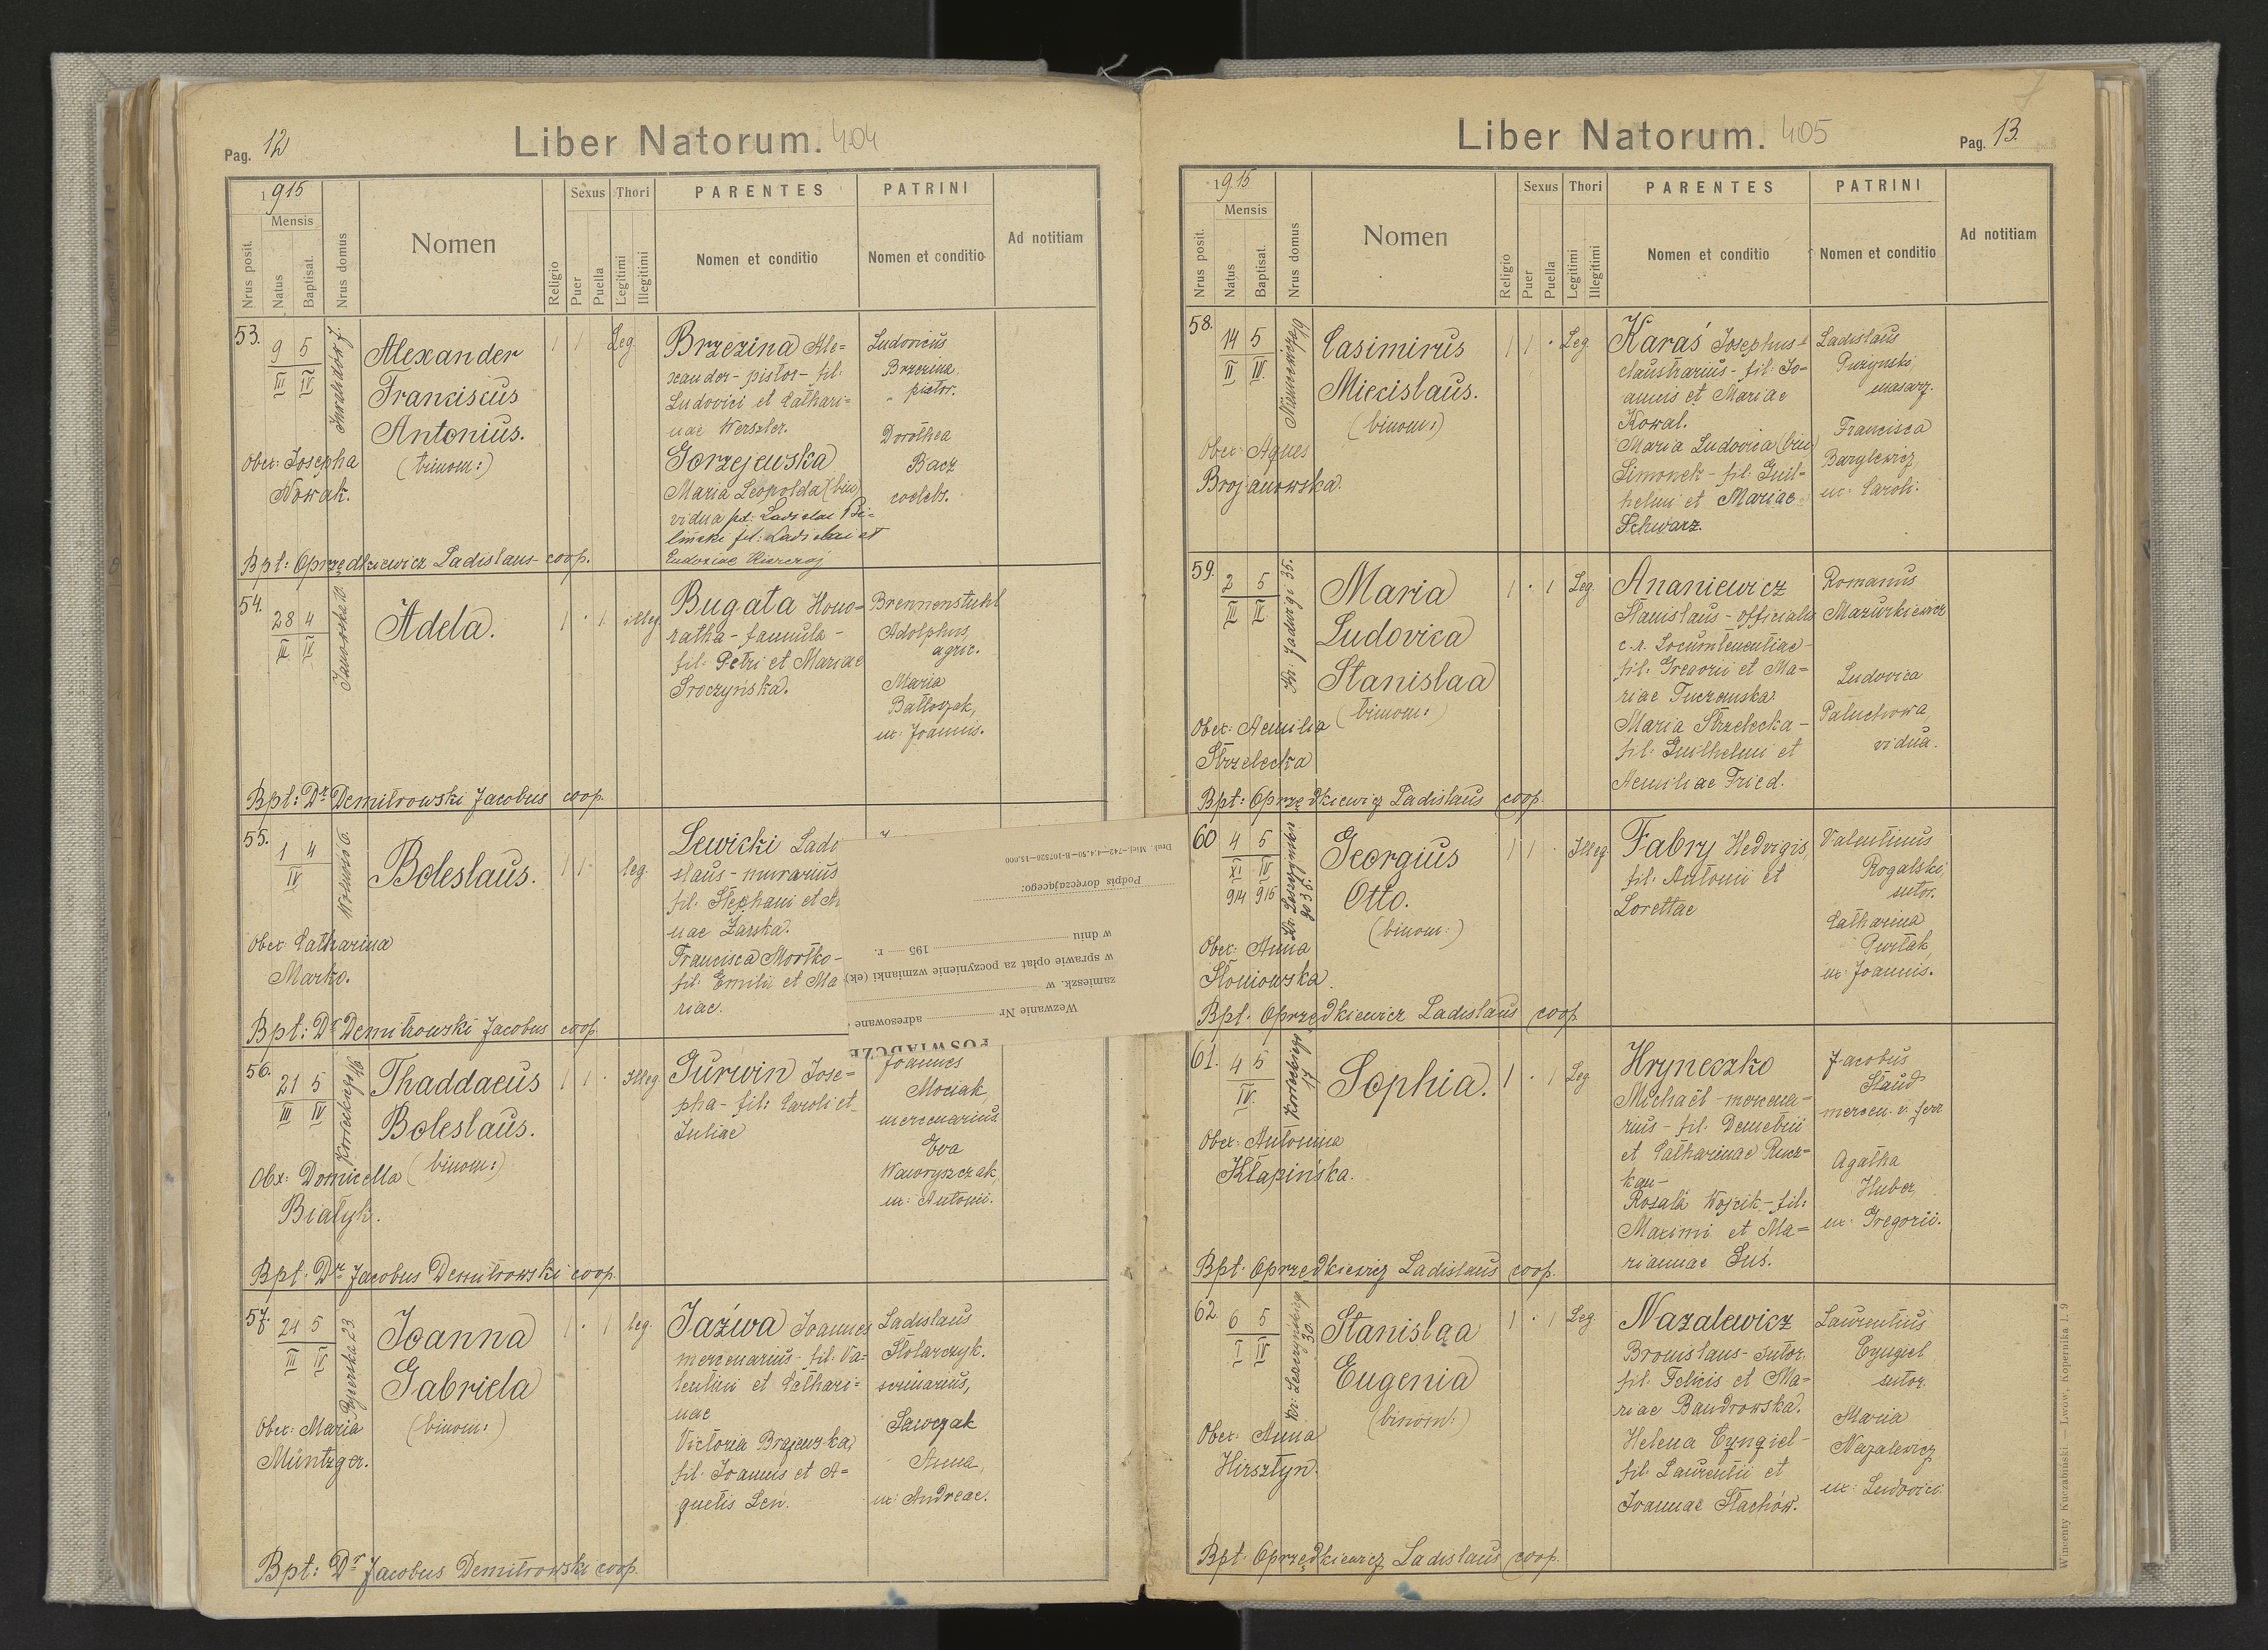 Pag. 12
Liber Natorum. 404
1915
Mensis
Nrus posit.
Natus
Baptisat.
Nrus domus
Nomen
Religio
Sexus
Puer
Puella
Thori
Legitimi
Illegitimi
PARENTES
Nomen et conditio
PATRINI
Nomen et conditio
Ad notitiam
53.
9 5
III IV
Alexander
Franciscus
Antonius.
(binom:)
Obet: Josepha
Nowak.
1 1 Leg.
Brzezina Ale=
xander - pistor - fil:
Ludovici et Cathari=
nae Werszler.
Gorzejewska
Maria Leopolda (bin)
vidua
Ludovicus
Brzezina,
pistor.
Dorothea
Bacz
coelebs.
Bpt: Oprzędkiewicz Ladislaus - coop.
54.
28 4
III IV
Janowska 10.
Adela.
1 · 1 illeg
Bugata Hono=
ratha - famula -
fil. Petri et Mariae
Sroczyńska.
Brennenstuhl
Adolphus,
agric.
Maria
Bałtoszak,
ux: Joannis.
Bpt: Dr Demitrowski Jacobus coop.
55.
1 4
IV
Boleslaus.
Obet: Catharina
Marko.
1 1 · leg.
Lewicki Ladi
slaus - murarius
fil. Stephani et A
nae Żarska.
Francisca Mortko -
fil. Emilii et Ma
riae.
Bpt: Dr Demitrowski Jacobus coop.
Druk. Miej.-742-4.4.50-B-107526-15.000
Podpis doręczającego:
w dniu 195 r.
w sprawie opłat za poczynienie wzmianki (ek)
zamieszk. w
Wezwanie Nr adresowane
POŚWIADCZE
56.
21 5
III IV
Korzeckiego 16
Thaddaeus
Boleslaus.
(binom:)
Obx: Domicella
Białyk.
1 1 · Illeg
Gurwin Jose=
pha - fil: Caroli et
Juliae
Joannes
Mociak,
mercenarius.
Eva
Wawryszczak
ux: Antonii.
Bpt. Dr Jacobus Demitrowski coop.
57.
24 5
III IV
Joanna
Gabriela
(binom:)
Obet: Maria
Müntzger.
1 · 1 leg.
Jaźwa Joannes
mercenarius - fil. Va=
lentini et Cathari=
nae
Victoria Brajewska,
fil. Joannis et A=
gnetis Leń.
Ladislaus
Stolarczyk.
scriniarius,
Sawczak
Anna,
ux: Andreae.
Bpt: Dr Jacobus Demitrowski coop.
Liber Natorum. 405
Pag. 13.
1915
Mensis
Nrus posit.
Natus
Baptisat.
Nrus domus
Nomen
Religio
Sexus
Puer
Puella
Thori
Legitimi
Illegitimi
PARENTES
Nomen et conditio
PATRINI
Nomen et conditio
Ad notitiam
58.
14 5
II IV
Casimirus
Miecislaus.
(binom:)
Obet: Agnes
Brojanowska.
1 1 · Leg.
Karaś Josephus -
claustrarius - fil: Jo=
annis et Mariae
Kowal.
Maria Ludovica (bin)
Simonek - fil. Guil=
helmi et Mariae
Schwarz.
Ladislaus
Puzynski,
masarz.
Francisca
Barylewicz
ux: Caroli.
59.
2 5
III IV
Kr: Jadwigi 35.
Maria
Ludovica
Stanislaa
(binom:)
Obet: Aemilia
Strzelecka
1 · 1 Leg.
Ananiewicz
Stanislaus - officialis
c. r. Locumtenentiae -
fil. Gregorii et Ma=
riae
Maria Strzelecka -
fil. Guilhelmi et
Aemiliae Fried.
Romanus
Mazurkiewicz
Ludovica
Paluchowa,
vidua.
Bpt: Oprzędkiewicz Ladislaus coop.
60
4 5
XI IV
914 915
Georgius
Otto.
(binom:)
Obet: Anna
Słoniowska.
1 1 · Illeg
Fabry Hedvigis,
fil. Antonii et
Lorettae
Valentinus
Rogalski,
sutor.
Catharina
Purtak,
ux: Joannis.
Bpt. Oprzędkiewicz Ladislaus coop.
61.
4 5
IV.
Korzeckiego
17
Sophia.
Obet: Antonina
Kłapińska.
1 · 1 Leg
Hryneczko
Michaël - mercena=
rius - fil. Demetrii
et Catharinae Rucz=
kan -
Rosalá Wojcik - fil:
Maximi et Ma=
riannae Suś.
Jacobus
Staud
mercen. v. ferr.
Agatha
Huber,
ux: Gregorii.
Bpt. Oprzędkiewicz Ladislaus coop.
62.
6 5
I IV
Kr: Leszczyńskiego
30.
Stanislaa
Eugenia
(binom:)
Obet: Anna
Hirsztyn.
1 · 1 Leg.
Nazalewicz
Bronislaus - sutor.
fil. Felicis et Ma=
riae Bandrowska.
Helena Cyngiel -
fil. Laurentii et
Joannae Stachów.
Laurentius
Cyngiel
sutor.
Maria
Nazalewicz
ux: Ludovici.
Bpt. Oprzędkiewicz Ladislaus coop.
Wincenty Kuczabiński — Lwów, Kopernika l. 9